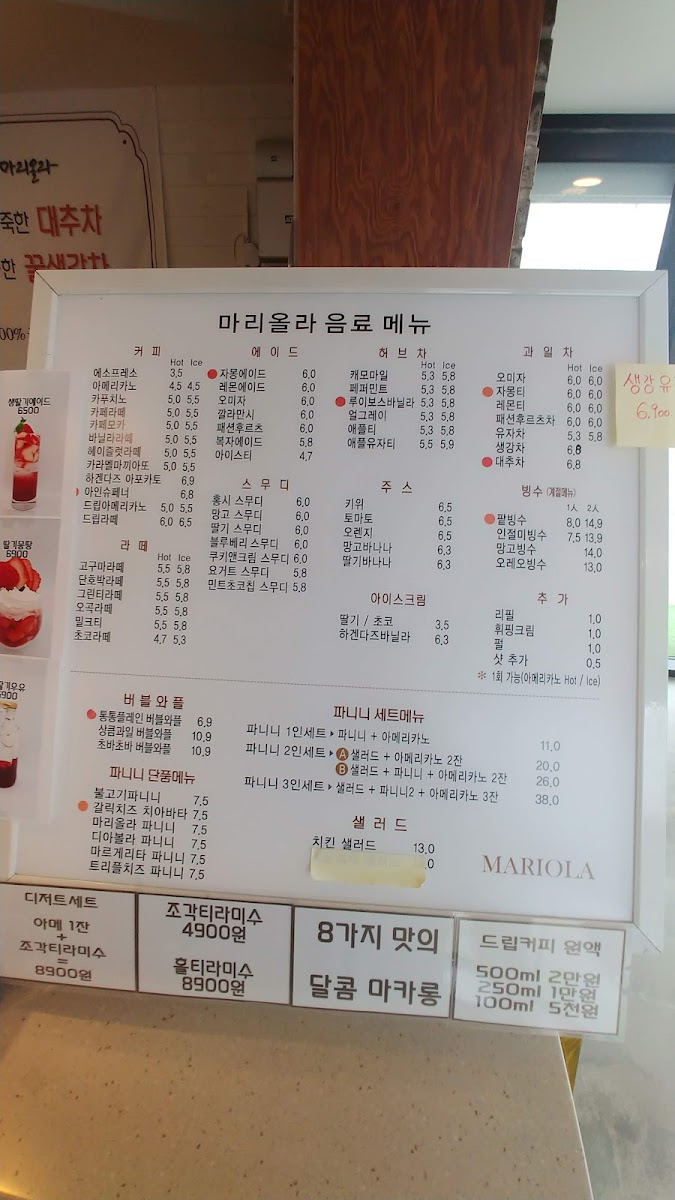 마리올라
죽한 대추차
한 꿀생강차
00%
생딸기에이드
6500
딸기몽땅
6900
딸기우유
6900
마리올라 음료 메뉴
커 피
Hot Ice
에소프레소 3,5
아메리카노 4,5 4,5
카푸치노 5,0 5,5
카페라떼 5,0 5,5
카페모카 5,0 5,5
바닐라라떼 5,0 5,5
헤이즐럿라떼 5,0 5,5
카라멜마끼아또 5,0 5,5
하겐다즈 아포카토 6,9
아인슈페너 6,8
드립아메리카노 5,0 5,5
드립라떼 6,0 6,5
라 떼
Hot Ice
고구마라떼 5,5 5,8
단호박라떼 5,5 5,8
그린티라떼 5,5 5,8
오곡라떼 5,5 5,8
밀크티 5,5 5,8
초코라떼 4,7 5,3
에 이 드
자몽에이드 6,0
레몬에이드 6,0
오미자 6,0
깔라만시 6,0
패션후르츠 6,0
복자에이드 5,8
아이스티 4,7
스 무 디
홍시 스무디 6,0
망고 스무디 6,0
딸기 스무디 6,0
블루베리 스무디 6,0
쿠키앤크림 스무디 6,0
요거트 스무디 5,8
민트초코칩 스무디 5,8
허 브 차
Hot Ice
캐모마일 5,3 5,8
페퍼민트 5,3 5,8
루이보스바닐라 5,3 5,8
얼그레이 5,3 5,8
애플티 5,3 5,8
애플유자티 5,5 5,9
주 스
키위 6,5
토마토 6,5
오렌지 6,5
망고바나나 6,3
딸기바나나 6,3
아이스크림
딸기 / 초코 3,5
하겐다즈바닐라 6,3
과 일 차
Hot Ice
오미자 6,0 6,0
자몽티 6,0 6,0
레몬티 6,0 6,0
패션후르츠차 6,0 6,0
유자차 5,3 5,8
생강차 6,8
대추차 6,8
생강 유
6.900
빙수 (계절메뉴)
1人 2人
팥빙수 8,0 14,9
인절미빙수 7,5 13,9
망고빙수 14,0
오레오빙수 13,0
추 가
리필 1,0
휘핑크림 1,0
펄 1,0
샷 추가 0,5
* 1회 가능(아메리카노 Hot / Ice)
버 블 와 플
통통플레인 버블와플 6,9
상큼과일 버블와플 10,9
초바초바 버블와플 10,9
파니니 단품메뉴
불고기파니니 7,5
갈릭치즈 치아바타 7,5
마리올라 파니니 7,5
디아볼라 파니니 7,5
마르게리타 파니니 7,5
트리플치즈 파니니 7,5
파니니 세트메뉴
파니니 1인세트 ▸ 파니니 + 아메리카노 11,0
파니니 2인세트 ▸ A 샐러드 + 아메리카노 2잔 20,0
B 샐러드 + 파니니 + 아메리카노 2잔 26,0
파니니 3인세트 ▸ 샐러드 + 파니니2 + 아메리카노 3잔 38,0
샐 러 드
치킨 샐러드 13,0
MARIOLA
디저트세트
아메 1잔
+
조각티라미수
=
8900원
조각티라미수
4900원
홀티라미수
8900원
8가지 맛의
달콤 마카롱
드립커피 원액
500ml 2만원
250ml 1만원
100ml 5천원